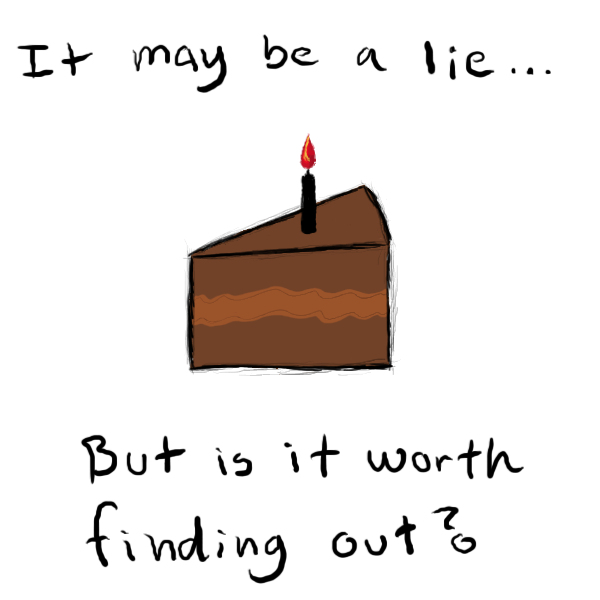 It may be a lie...
But is it worth
finding out?